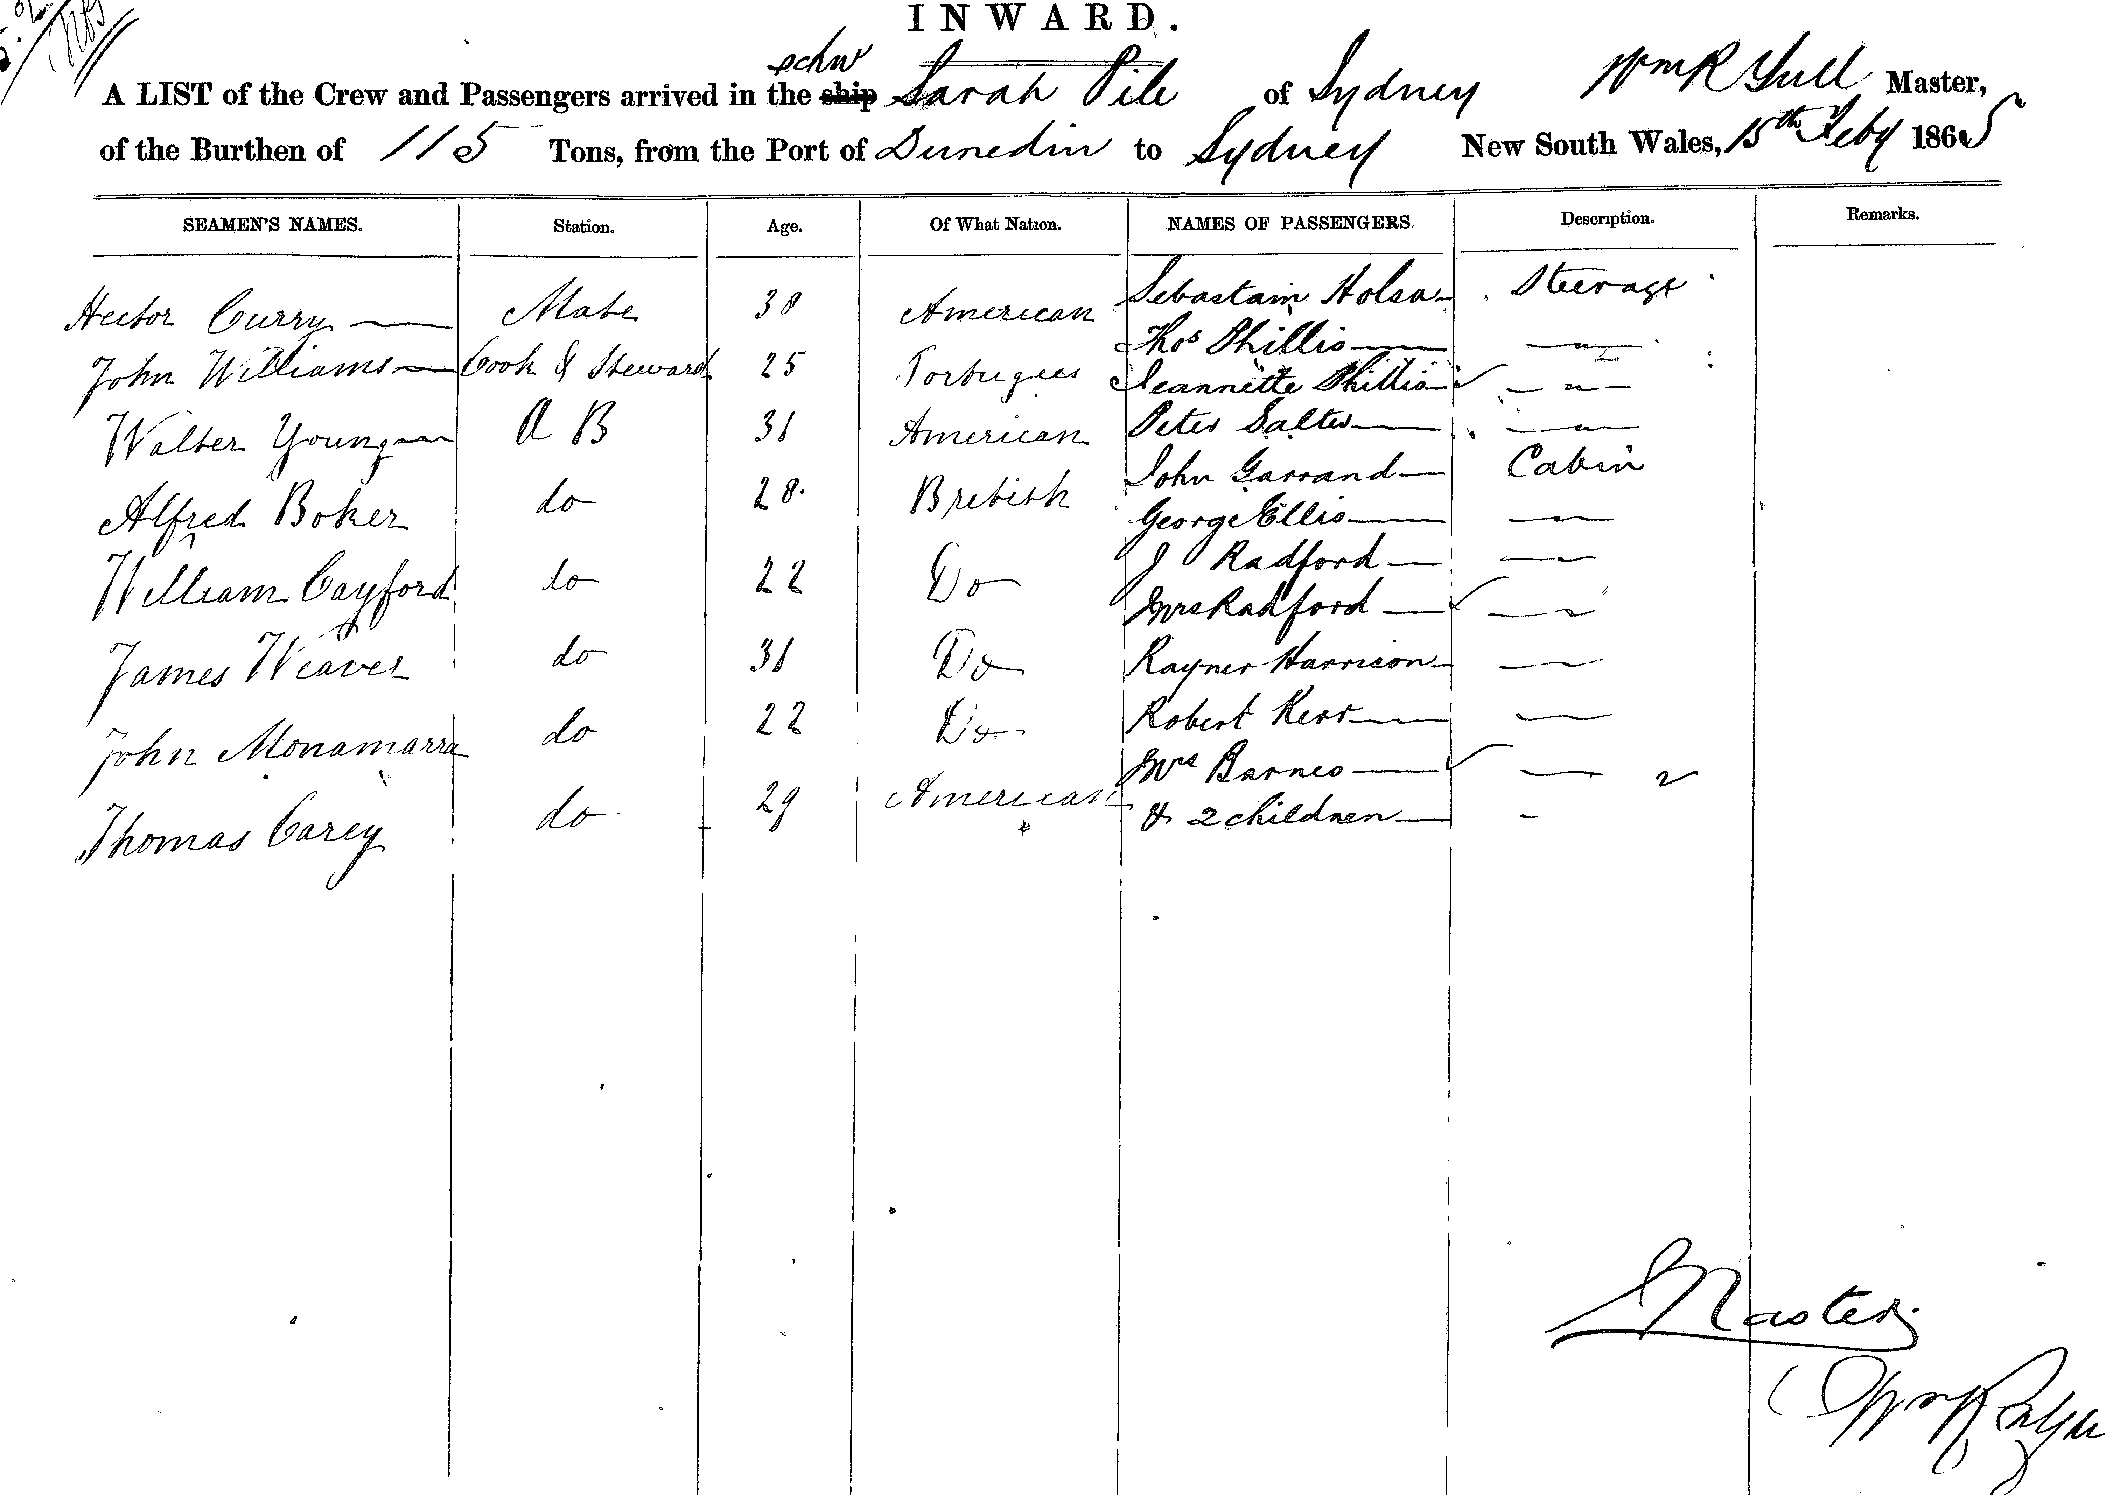 INWARD.
schr
A LIST of the Crew and Passengers arrived in the ship Sarah Pile of Sydney Wm R Yull Master,
of the Burthen of 115 Tons, from the Port of Dunedin to Sydney New South Wales, 15th Feby 1865
SEAMEN'S NAMES. Station. Age. Of What Nation. NAMES OF PASSENGERS. Description. Remarks.
Hector Curry Mate 38 American Sebastain Holsa Steerage
Thos Phillis — " —
John Williams Cook & Steward 25 Portugees Jeannette Phillis — " —
Walter Young A B 31 American Peter Salter — " —
John Garrand Cabin
Alfred Boker do 28 British George Ellis —
J Radford —
William Cayford do 22 Do Mrs Radford —
James Weaver do 31 Do Rayner Harrison —
John Monamarra do 22 Do Robert Kerr —
Mrs Barnes — 2
Thomas Carey do 29 American & 2 children -
Master